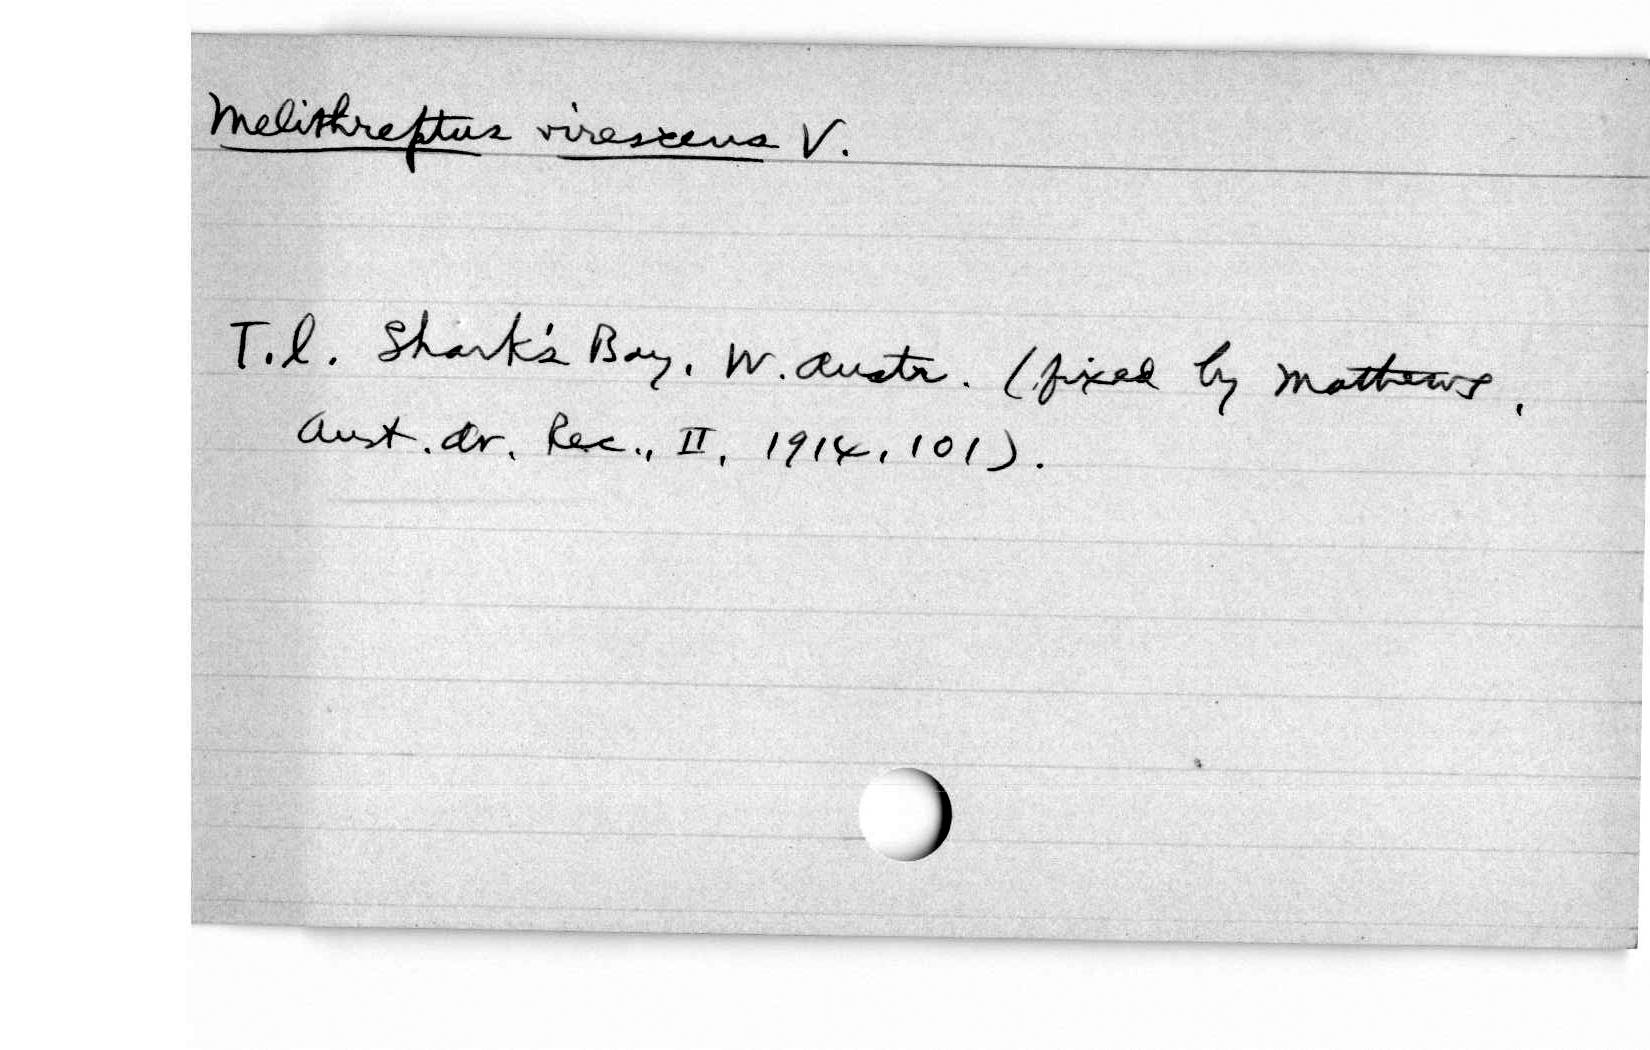 Melithreptus virescens V.
T.l. Shark's Bay, W. Austr. (fixed by Mathews,
Aust. Av. Rec., II, 1914, 101).